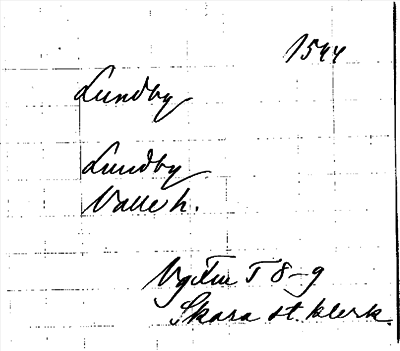 1544
Lundby
Lundby
Valle h.
Vg Fur T 8-9
Skara st. klerk.